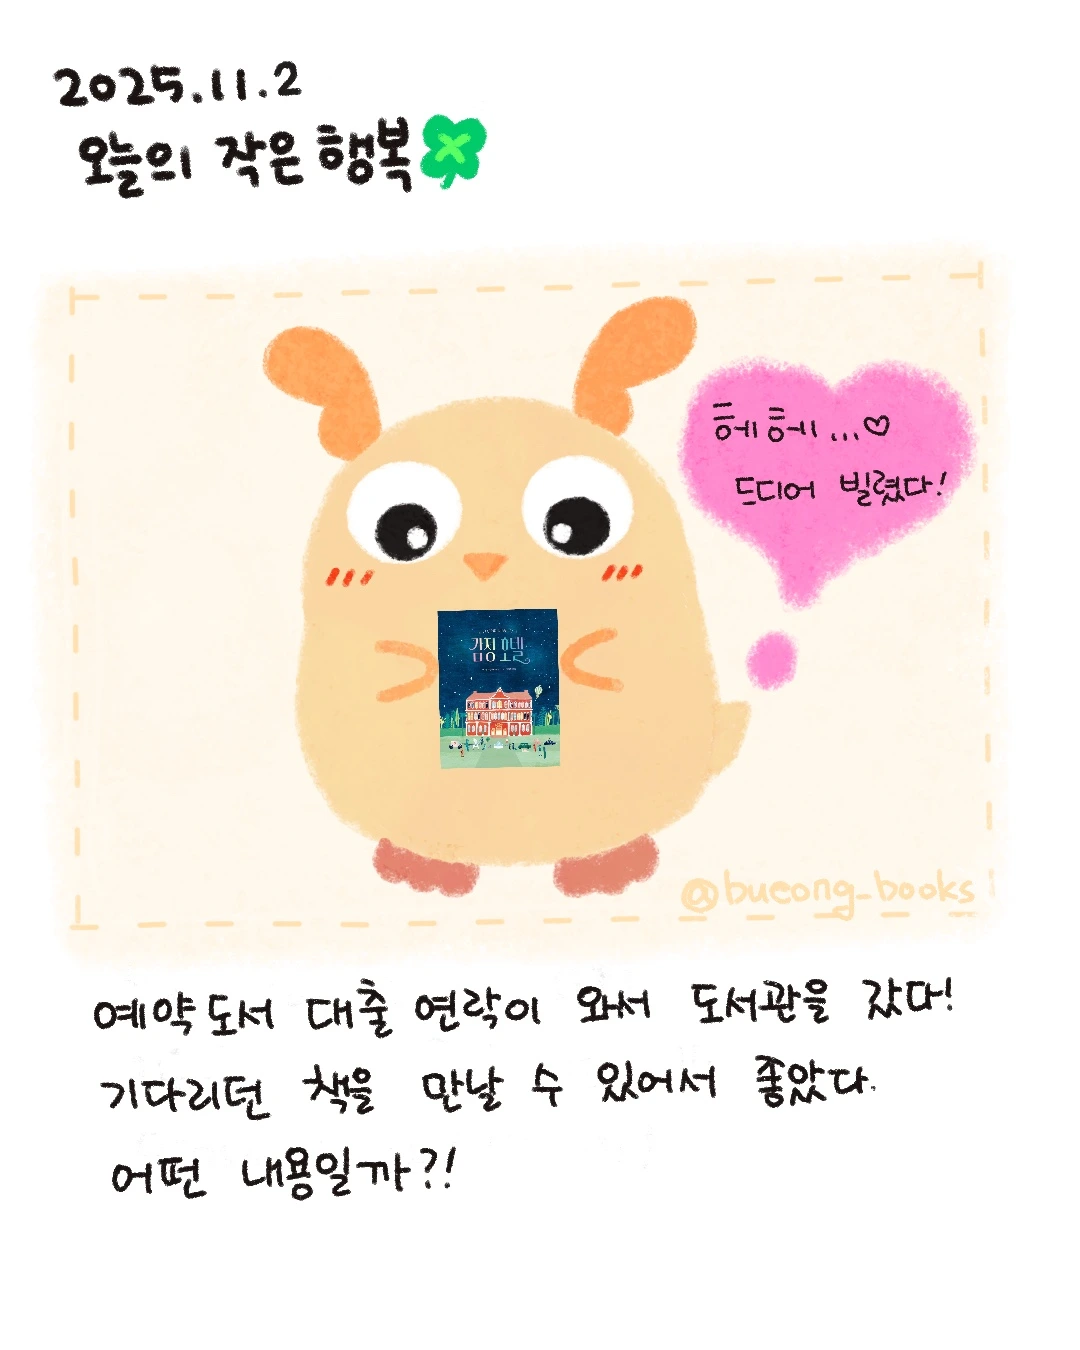 2025.11.2
오늘의 작은 행복
헤헤...♡
드디어 빌렸다!
감정 호텔
@bueong_books
예약도서 대출 연락이 와서 도서관을 갔다!
기다리던 책을 만날 수 있어서 좋았다.
어떤 내용일까?!